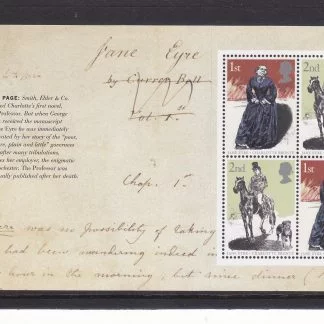 Jane Eyre
by Currer Bell
Vol. 1st
PAGE: Smith, Elder & Co.
ed Charlotte's first novel,
Professor. But when George
received the manuscript
ne Eyre he was immediately
vated by her story of the "poor,
ure, plain and little" governess
after many tribulations,
es her employer, the enigmatic
ochester. The Professor was
ually published after her death.
Chap. 1st
ere was no possibility of taking
had been wandering indeed in
hour in the morning, but since dinner (
1st
2nd
JANE EYRE · CHARLOTTE BRONTË
2nd
1st